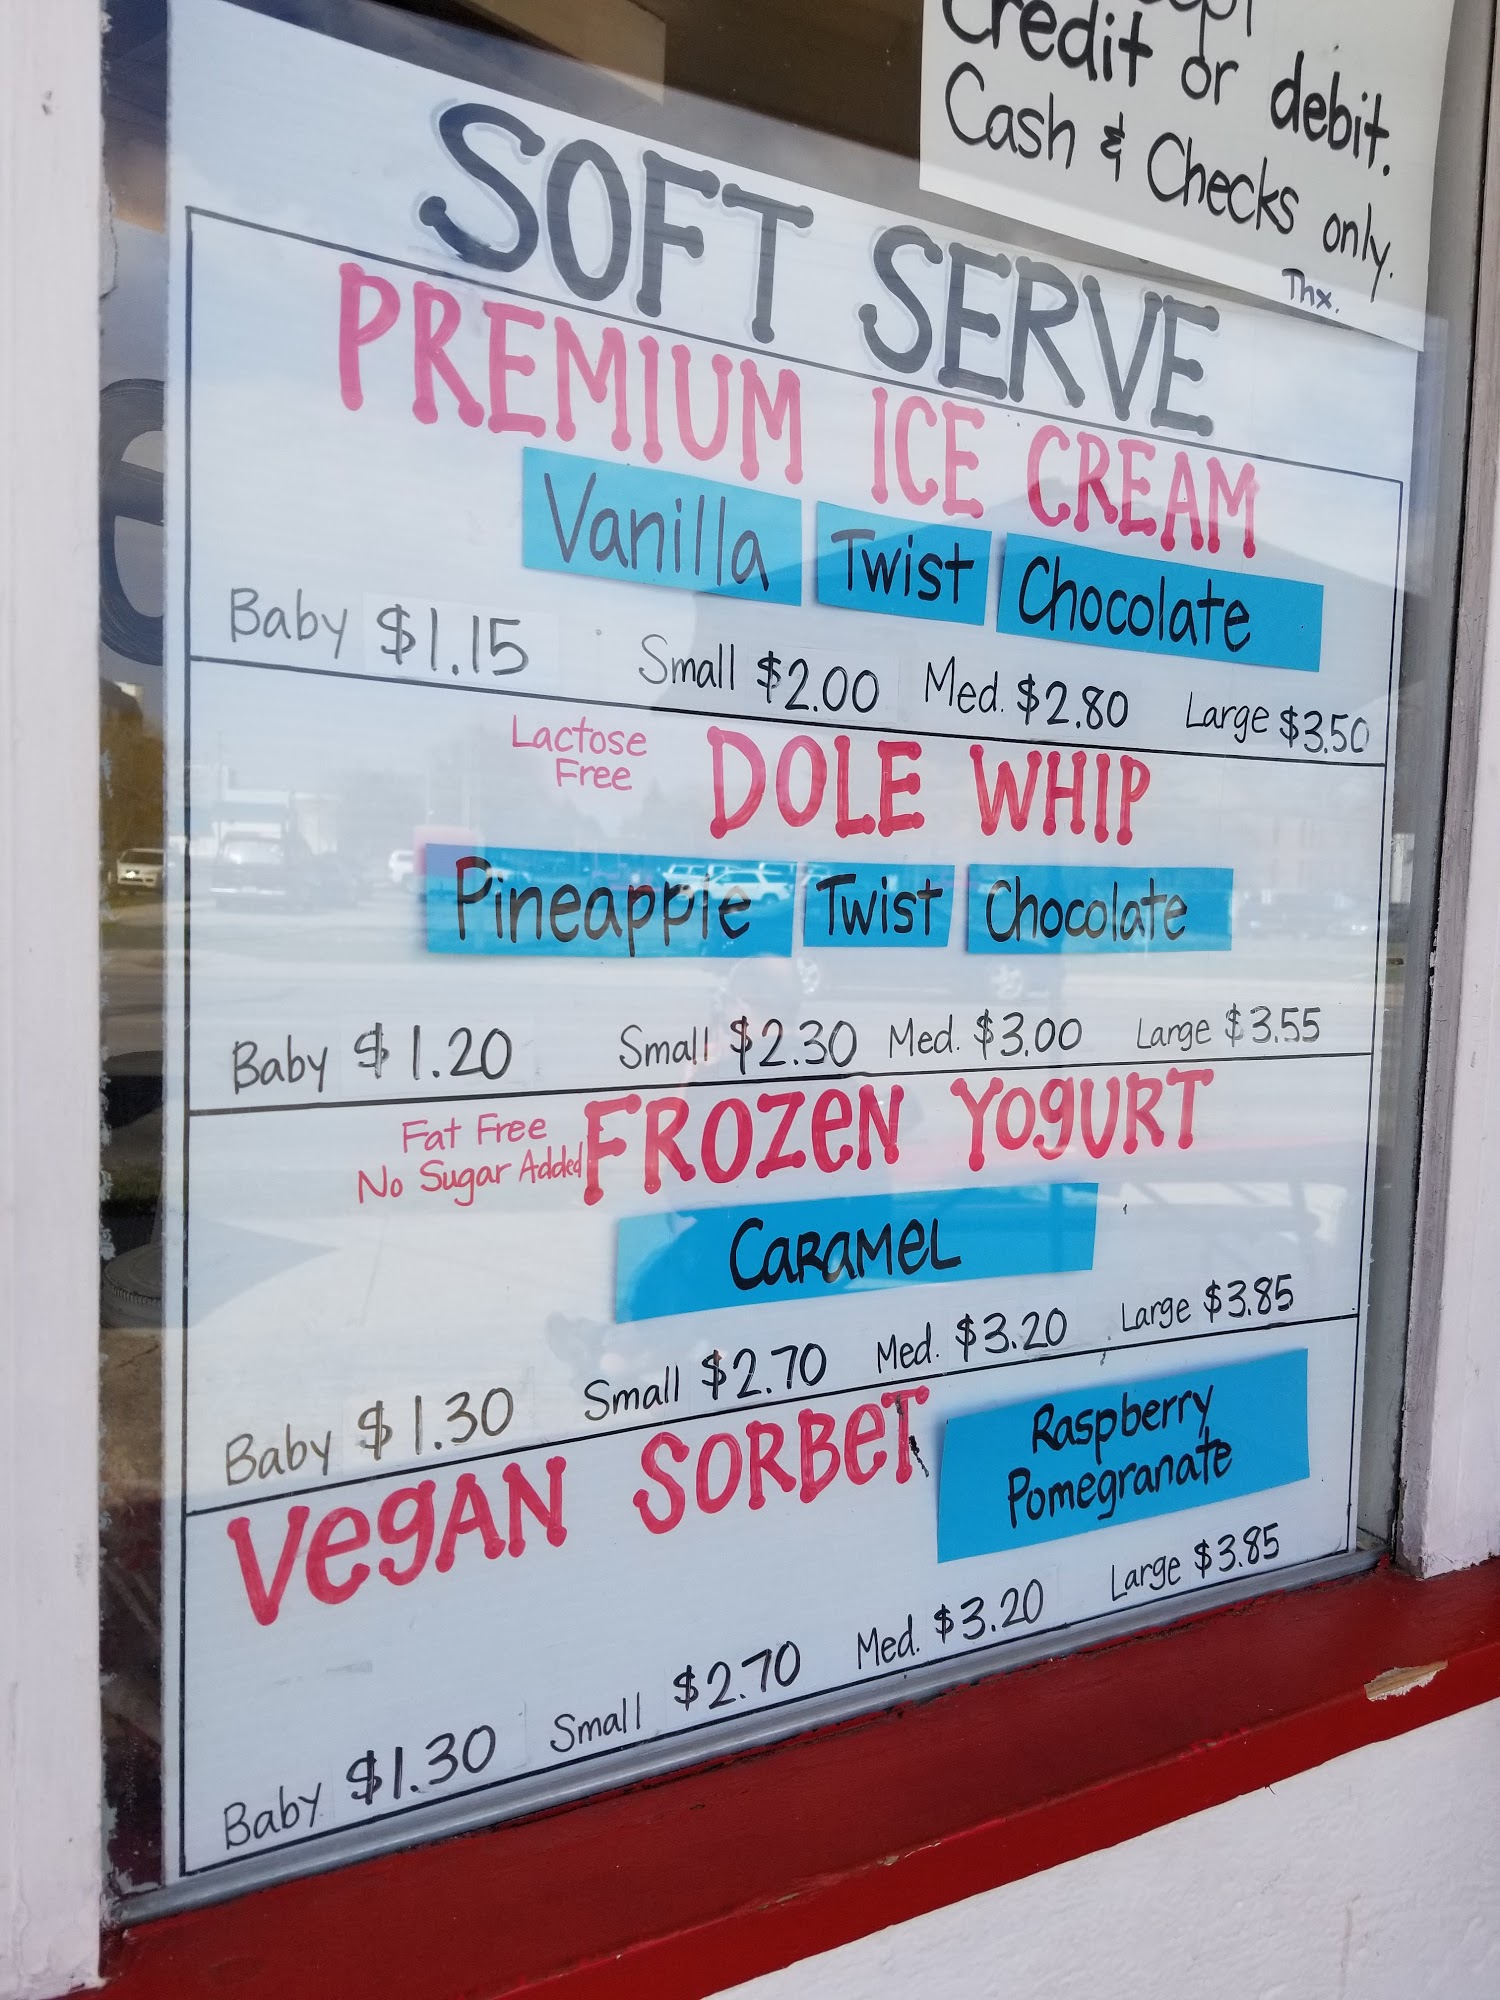 Credit or debit.
Cash & Checks only.
Thx.
SOFT SERVE
PREMIUM ICE CREAM
Vanilla Twist Chocolate
Baby $1.15 Small $2.00 Med. $2.80 Large $3.50
Lactose
Free
DOLE WHIP
Pineapple Twist Chocolate
Baby $1.20 Small $2.30 Med. $3.00 Large $3.55
Fat Free
No Sugar Added
FROZEN YOGURT
CARAMEL
Baby $1.30 Small $2.70 Med. $3.20 Large $3.85
VEGAN SORBET
Raspberry
Pomegranate
Baby $1.30 Small $2.70 Med. $3.20 Large $3.85